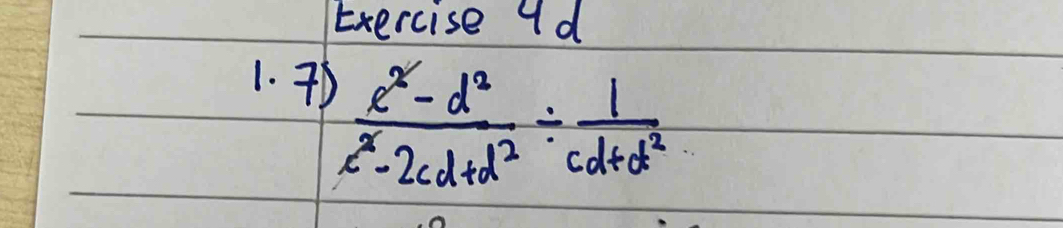 Exercise 4d
1. 7) c² - d² / c² - 2cd + d² ÷ 1 / cd + d²